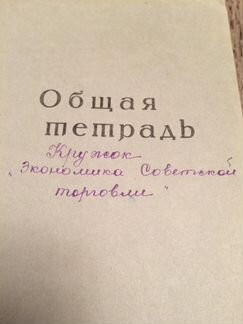 Общая
тетрадь
Кружок
„Экономика Советской
торговли"